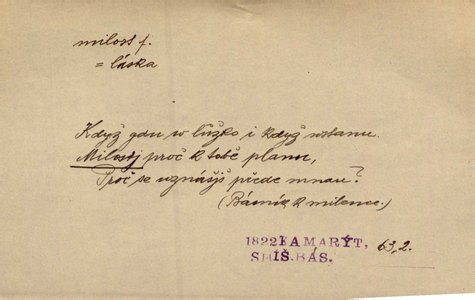 milost f.
= láska
Když gdu w lůžko i když wstanu
Milostj proč k tobě planu,
Proč se wznášjš přede mnau?
(Básnjk k milence.)
1822 KAMARÝT, 63,2.
SMÍŠ.BÁS.